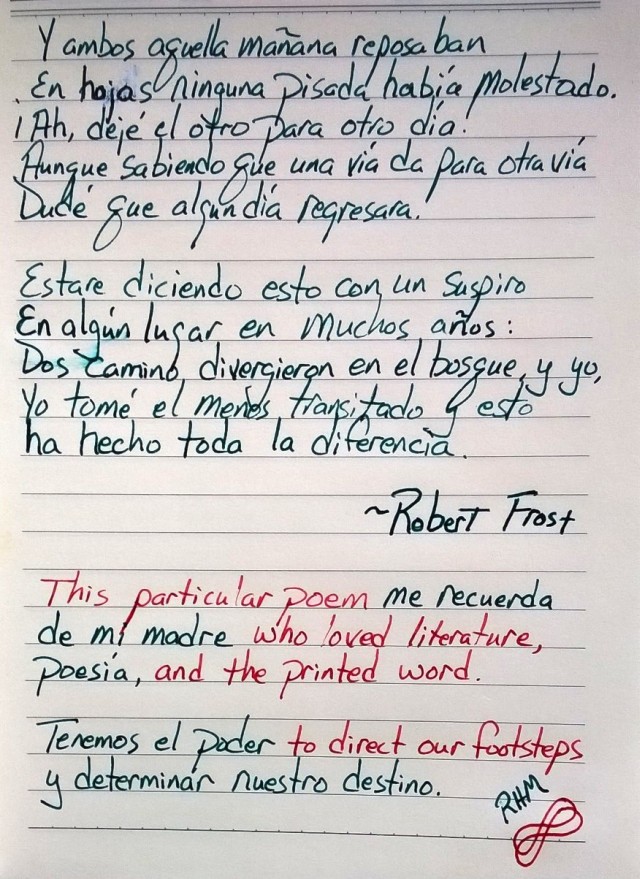 Y ambos aquella mañana reposaban
En hojas ninguna pisada había molestado.
¡Ah, dejé el otro para otro día!
Aunque sabiendo que una vía da para otra vía
Dudé que algún día regresara.
Estare diciendo esto con un suspiro
En algún lugar en muchos años:
Dos camino, divergieron en el bosque, y yo,
Yo tomé el menos transitado y esto
ha hecho toda la diferencia.
~Robert Frost
This particular poem me recuerda
de mi madre who loved literature,
poesía, and the printed word.
Tenemos el poder to direct our footsteps
y determinar nuestro destino.
RHM